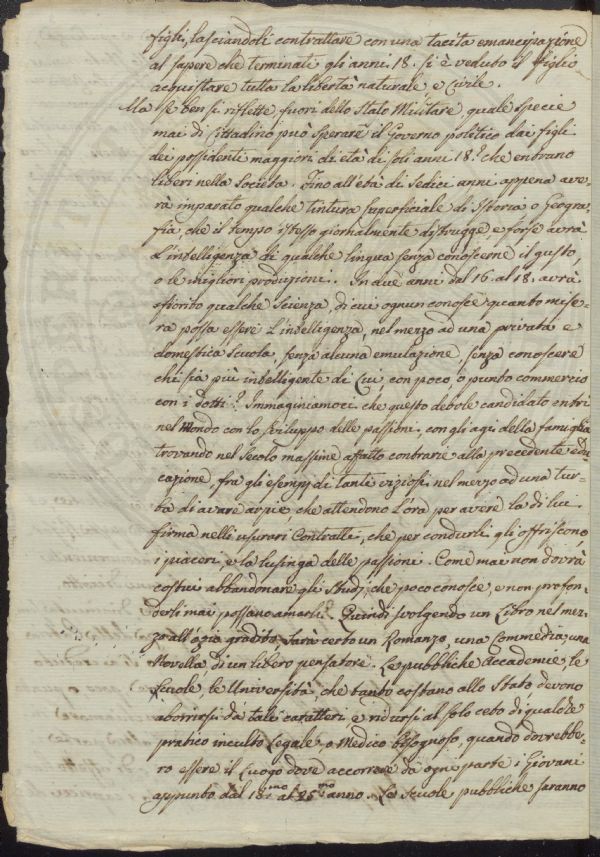 figli, lasciandoli contrattare con una tacita emancipazione
al sapere che terminati gli anni 18. si è veduto il figlio
acquistare tutta la libertà naturale e Civile.
Ma se ben si riflette, fuori dello Stato Militare, quale specie
mai di Cittadino può sperare il Governo politico dai figli
dei possidenti maggiori di età di soli anni 18.? che entrano
liberi nella Società. Fino all'età di Sedici anni appena ave-
rà imparato qualche tintura superficiale di Istoria o Geogra-
fia, che il tempo istesso giornalmente distrugge, e forse avrà
l'intelligenza di qualche lingua senza conoscerne il gusto,
o le migliori produzioni. In due anni dal 16. al 18. avrà
sfiorito qualche Scienza, di cui ognun conosce quanto mise-
ra possa essere l'intelligenza, nel mezzo ad una privata e
domestica Scuola, senza alcuna emulazione, senza conoscere
chi sia più intelligente di Lui, con poco, o punto commercio
con i dotti? Immaginiamoci che questo debole candidato entri
nel Mondo con lo sviluppo delle passioni, con gli agi della famiglia
trovando nel Secolo massime affatto contrarie alla precedente edu-
cazione, fra gli esempj di tanti viziosi, nel mezzo ad una tur-
ba di avare arpie, che attendono l'ora per avere la di lui
firma nelli usurari Contratti, che per condurli gli offriscono
i piaceri, e la lusinga delle passioni. Come mai non dovrà
costui abbandonare gli Studj, che poco conosce, e non
mai possano amarli? Quindi svolgendo un Libro nel mez-
zo all'ozio gradito, sarà certo un Romanzo, una Commedia, una
Novella, di un libero pensatore. Le pubbliche Accademie, le
Scuole, le Università, che tanto costano allo Stato, devono
aborrirsi da tali caratteri, e ridursi al solo ceto di qualche
pratico inculto Legale, o Medico bisognoso, quando dovrebbe-
ro essere il Luogo dove accorrere da ogni parte i Giovani
appunto dal 18.mo al 25.mo anno. Le Scuole pubbliche saranno